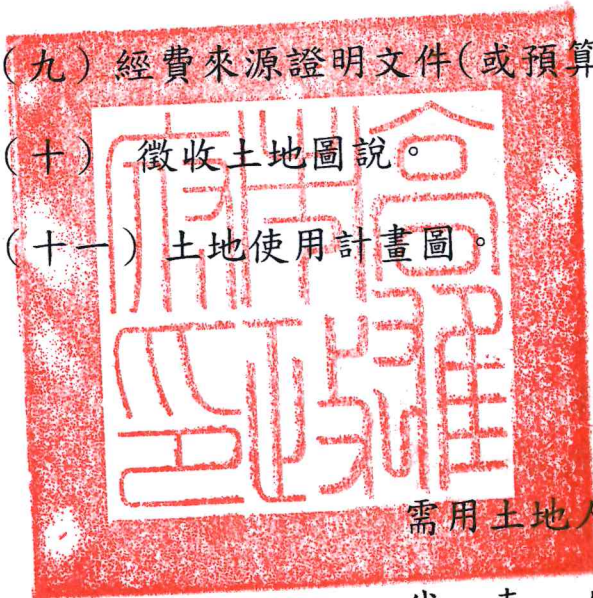 （九）經費來源證明文件(或預算
（十） 徵收土地圖說。
（十一）土地使用計畫圖。
高雄市政府印
需用土地人
代 表